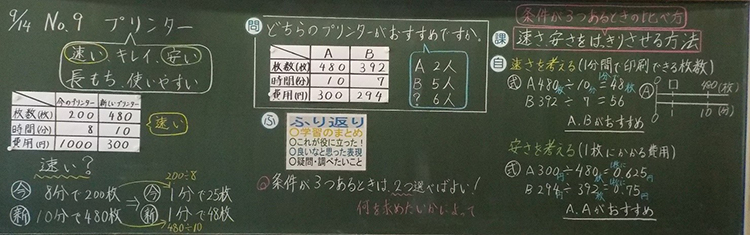 9/14 No.9 プリンター
速い、キレイ、安い
長もち、使いやすい
今のプリンター 新しいプリンター
枚数(枚) 200 480
時間(分) 8 10
費用(円) 1000 300
速い
速い?
200÷8
今 8分で200枚 ⇒ 今 1分で25枚
新 10分で480枚 新 1分で48枚
480÷10
問 どちらのプリンターがおすすめですか。
A B
枚数(枚) 480 392
時間(分) 10 7
費用(円) 300 294
A 2人
B 5人
? 6人
ふり返り
○学習のまとめ
○これが役に立った!
○良いなと思った表現
○疑問・調べたいこと
◎条件が3つあるときは、2つ選べばよい!
何を求めたいかによって
条件が3つあるときの比べ方
課 速さ安さをはっきりさせる方法
自 速さを考える(1分間で印刷できる枚数)
式 A 480枚÷10分=48枚
1分で
B 392÷7=56
A.Bがおすすめ
A
0 □ 480 (枚)
0 1 10 (分)
安さを考える(1枚にかかる費用)
式 A 300円÷480枚=0.625円
1枚に
B 294円÷392枚=0.75円
1枚に
A.Aがおすすめ